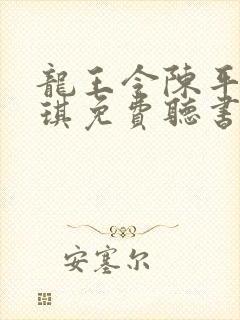 龍王令陳平
琪免費聽書
安塞尔